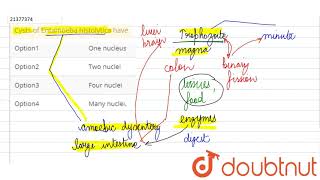 21377374
Cysts of Entamoeba histolytica have
Option1 One nucleus
Option2 Two nuclei
Option3 Four nuclei
Option4 Many nuclei.
liver
brain
Trophozoite
magna
minuta
colon
binary
fission
tissues,
food
enzymes
digest
amoebic dysentery
large intestine
doubtnut